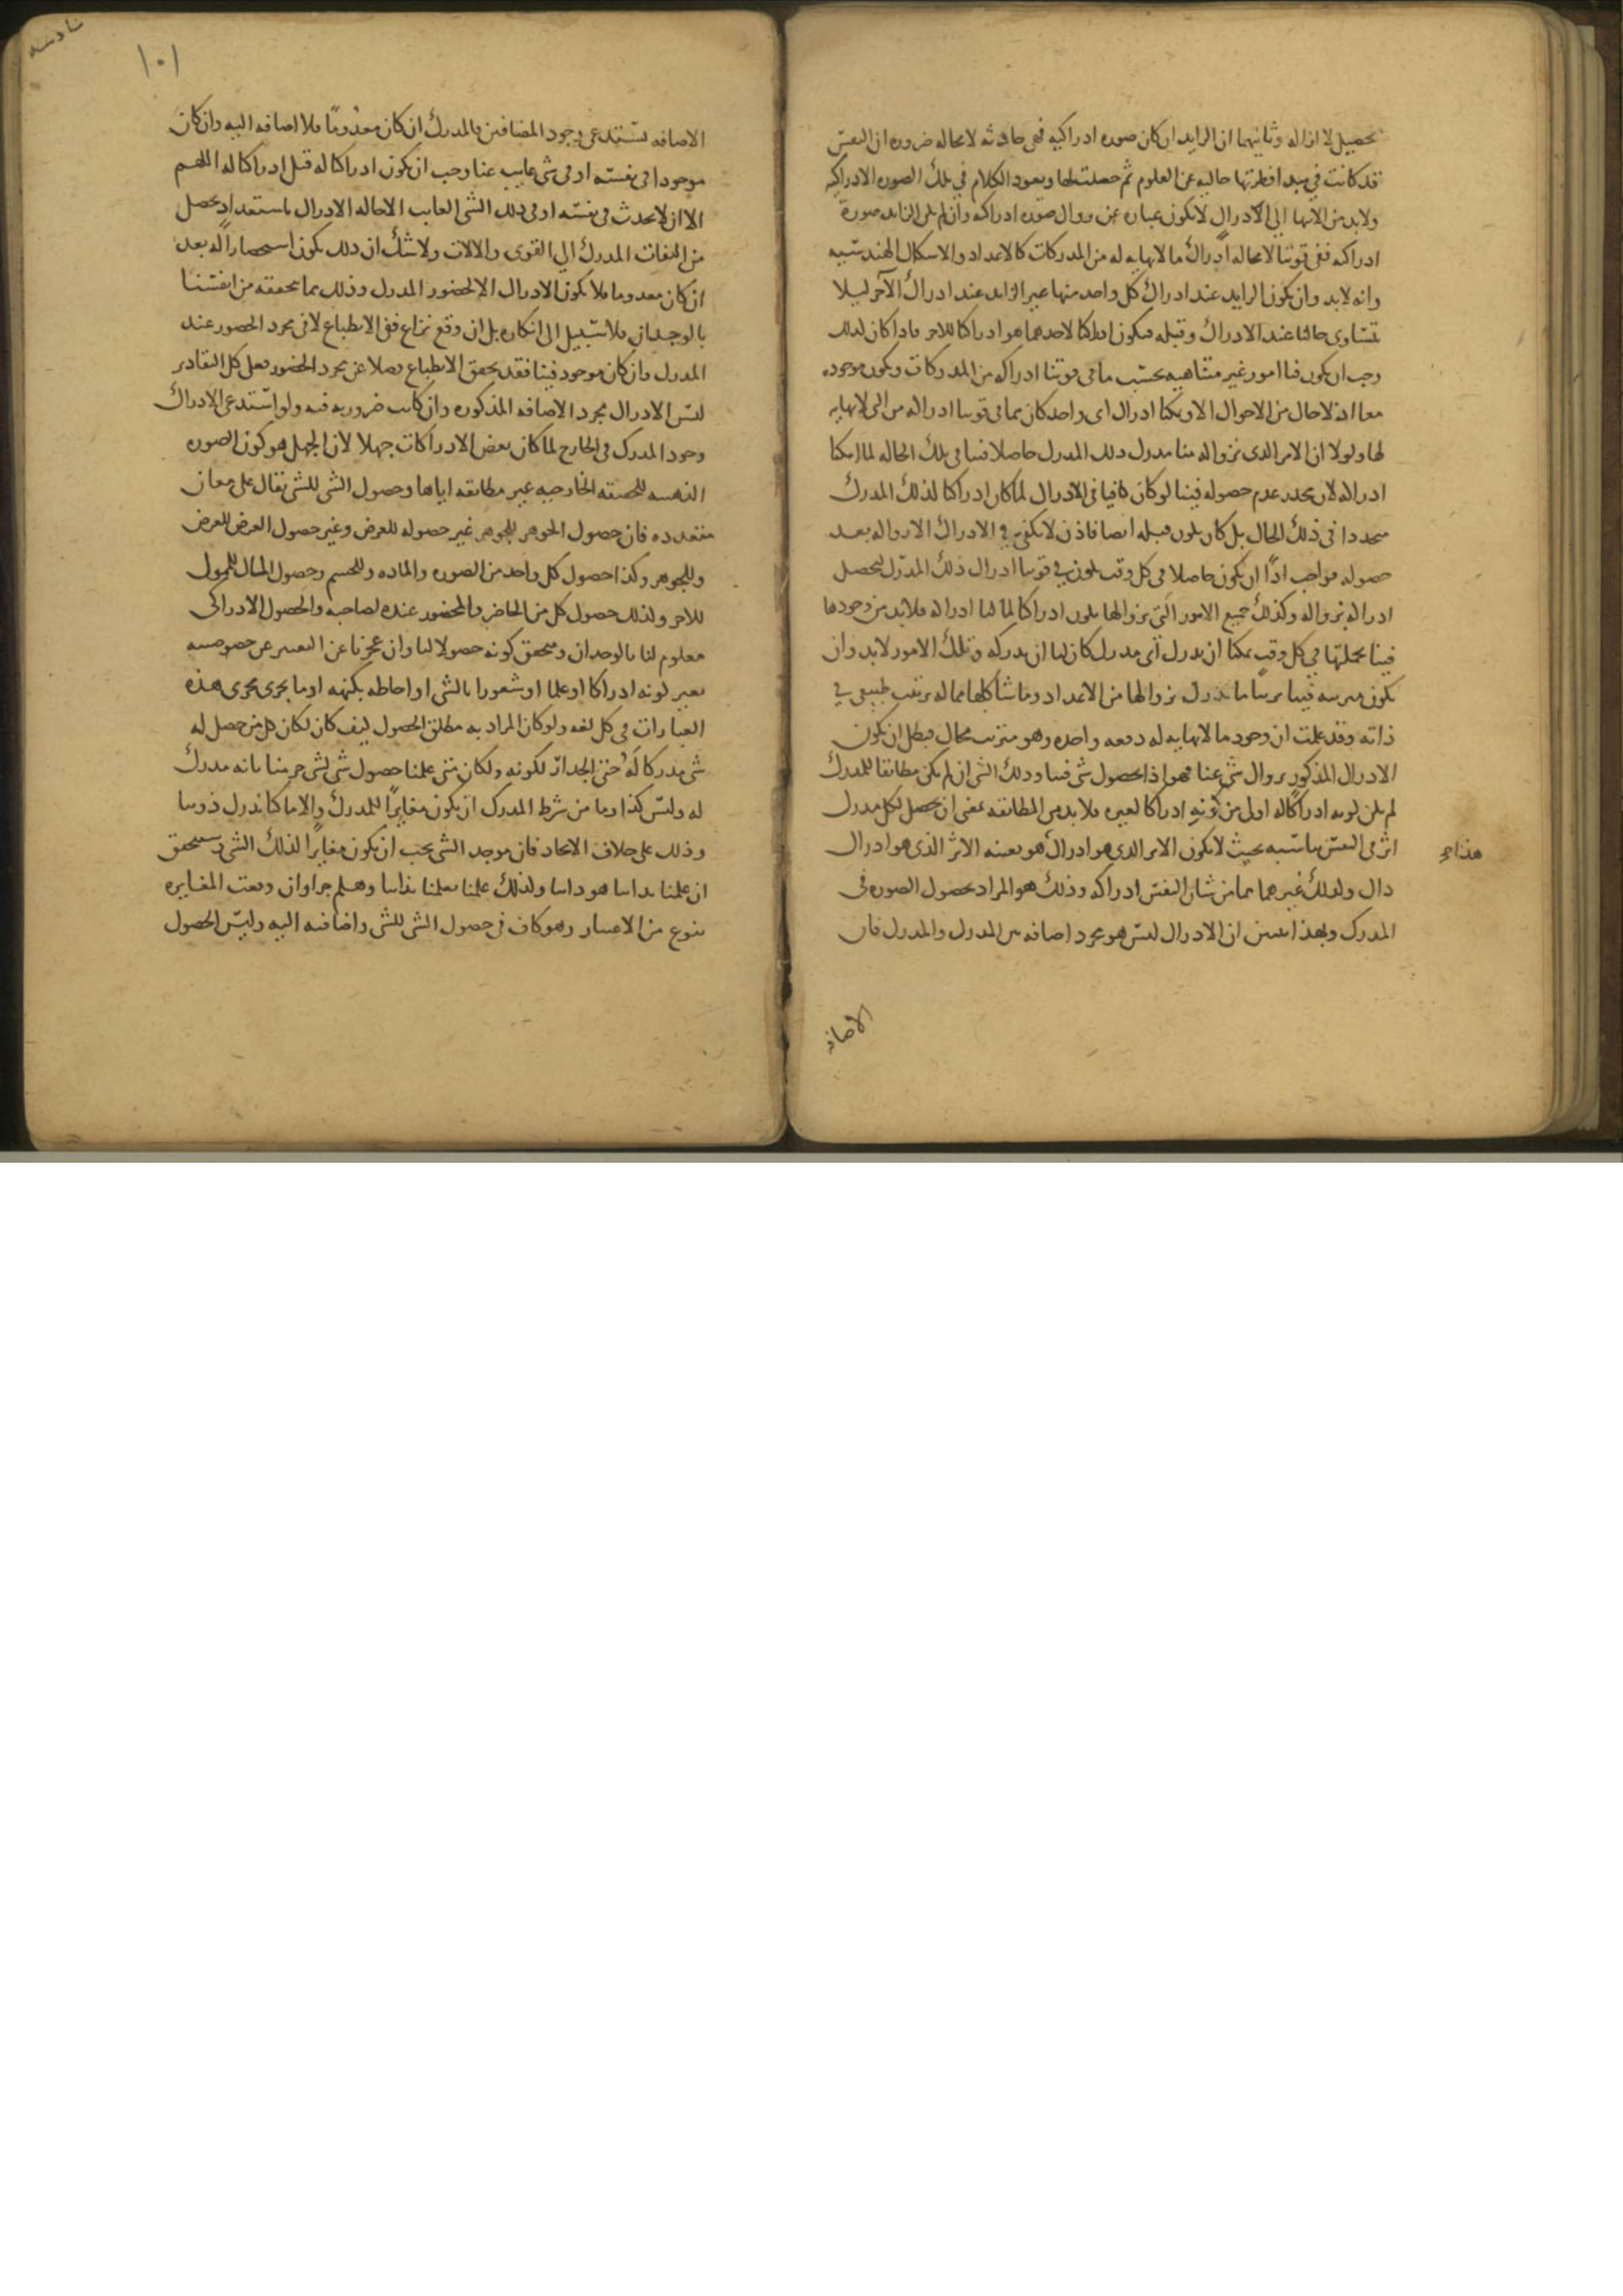 تحصيل لا ازاله وثانيهما ان الزايد ان كان صوره ادراكيه فهى حادثه لا محاله ضروره ان النفس
قد كانت في مبدا فطرتها خاليه عن العلوم ثم حصلت لها ويعود الكلام في تلك الصوره الادراكيه
ولا بد من الانتها الى ادراك لا يكون عباره عن زوال صوره ادراكيه وان لم يكن الزايد صورة
ادراكيه ففى قوتنا لا محاله ادراك ما لا نهايه له من المدركات كالاعداد والاشكال الهندسيه
وانه لا بد وان يكون الزايد عند ادراك كل واحد منها غير الزايد عند ادراك الآخر ليلا
تتساوى حالتا عند الادراك وقبله فيكون ادراكنا لاحدهما هو ادراكا للاخر فاذا كان كذلك
وجب ان يكون فينا امور غير متناهيه بحسب ما في قوتنا ادراكه من المدركات وتكون موجوده
معا اذ لا حال من الاحوال الا ويمكننا ادراك اى واحد كان مما في قوتنا ادراكه من الى لا نهايه
لها ولولا ان الامر الذى بزواله منا يدرك ذلك المدرك حاصلا فينا في تلك الحاله لما امكننا
ادراكه لان مجرد عدم حصوله فينا لو كان كافيا في الادراك لما كان ادراكنا لذلك المدرك
متجددا في ذلك الحال بل كان يكون قبله ايضا فاذن لا يكفى في الادراك الا زواله بعد
حصوله فواجب اذًا ان يكون حاصلا في كل وقت يكون في قوتنا ادراك ذلك المدرك ليحصل
ادراكه بزواله وكذلك جميع الامور التى بزوالها يكون ادراكنا لما لنا ادراكه فلا بد من وجودها
فينا بجملتها في كل وقت يمكننا ان ندرك اى مدرك كان لنا ان ندركه وتلك الامور لا بد وان
تكون مترتبه فينا ترتب ما ندرك بزوالها من الاعداد وما شاكلها مما له ترتب طبيعى في
ذاته وقد علمت ان وجود ما لا نهايه له دفعه واحده وهو مترتب محال فبطل ان يكون
الادراك المذكور بزوال شى عنا فهو اذا بحصول شى فينا وذلك الشى ان لم يكن مطابقا للمدرك
لم يكن كونه ادراكًا له اولى من كونه ادراكا لغيره فلا بد من المطابقه بمعنى ان يحصل لكل مدرك
اثر في النفس يناسبه بحيث لا يكون الاثر الذى هو ادراك هذا هو بعينه الاثر الذى هو ادراك
ذاك وكذلك غيرهما مما من شان النفس ادراكه وذلك هو المراد بحصول الصوره في
المدرك وبهذا يتبين ان الادراك ليس هو مجرد اضافه بين المدرك والمدرك فان
الاضافه
١٠١
الاضافه تستدعى وجود المضافين فالمدرك ان كان معدومًا فلا اضافه اليه وان كان
موجودا في نفسه او في شى غايب عنا وجب ان يكون ادراكا له قبل ادراكنا له اللهم
الا ان لا يحدث في نفسه او في ذلك الشى الغايب الا حاله الادراك باستعداد يحصل
من التفات المدرك الى القوى والالات ولا شك ان ذلك يكون استحضارًا له بعد
ان كان معدوما فلا يكون الادراك الا لحضور المدرك وذلك مما نتحققه من انفسنا
بالوجدان فلا سبيل الى انكاره بل ان وقع نزاع ففى الانطباع لا في مجرد الحضور عند
المدرك وان كان موجود فينا فقد تحقق الانطباع فضلا عن مجرد الحضور فعلى كل التقادير
ليس الادراك مجرد الاضافه المذكوره وان كانت ضروريه فيه ولو استدعى الادراك
وجود المدرك في الخارج لما كان بعض الادراكات جهلا لان الجهل هو كون الصوره
الذهنيه للحقيقه الخارجيه غير مطابقه اياها وحصول الشى للشى يقال على معان
متعدده فان حصول الجوهر للجوهر غير حصوله للعرض وغير حصول العرض للعرض
وللجوهر وكذا حصول كل واحد من الصوره والماده وللجسم وحصول المال للمتمول
للاخر وكذلك حصول كل من الحاضر والمحضور عنده لصاحبه والحصول الادراكى
معلوم لنا بالوجدان ونتحقق كونه حصولا لنا وان عجزنا عن التعبير عن خصوصيته
بغير كونه ادراكا او علما او شعورا بالشى او احاطه بكنهه او ما يجرى مجرى هذه
العبارات في كل لغه ولو كان المراد به مطلق الحصول كيف كان لكان كل من حصل له
شى مدركا له حتى الجدار لكونه ولكان متى علمنا حصول شى لشى جزمنا بانه مدرك
له وليس كذا وما من شرط المدرك ان يكون مغايرًا للمدرك والا ما كنا ندرك ذوتنا
وذلك على خلاف الايجاد فان موجد الشى يجب ان يكون مغايرًا لذلك الشى وستتحقق
ان علمنا بذاتنا هو ذاتنا وكذلك علمنا بعلمنا بذاتنا وهلم جرا وان وقعت المغايره
بنوع من الاعتبار وهو كاف في حصول الشى للشى واضافته اليه وليس الحصول